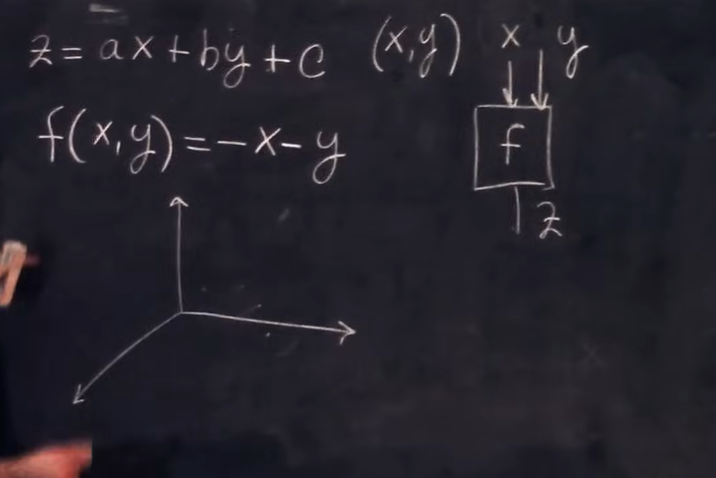 z = ax + by + c (x,y) x y
f(x,y) = -x - y
f
z